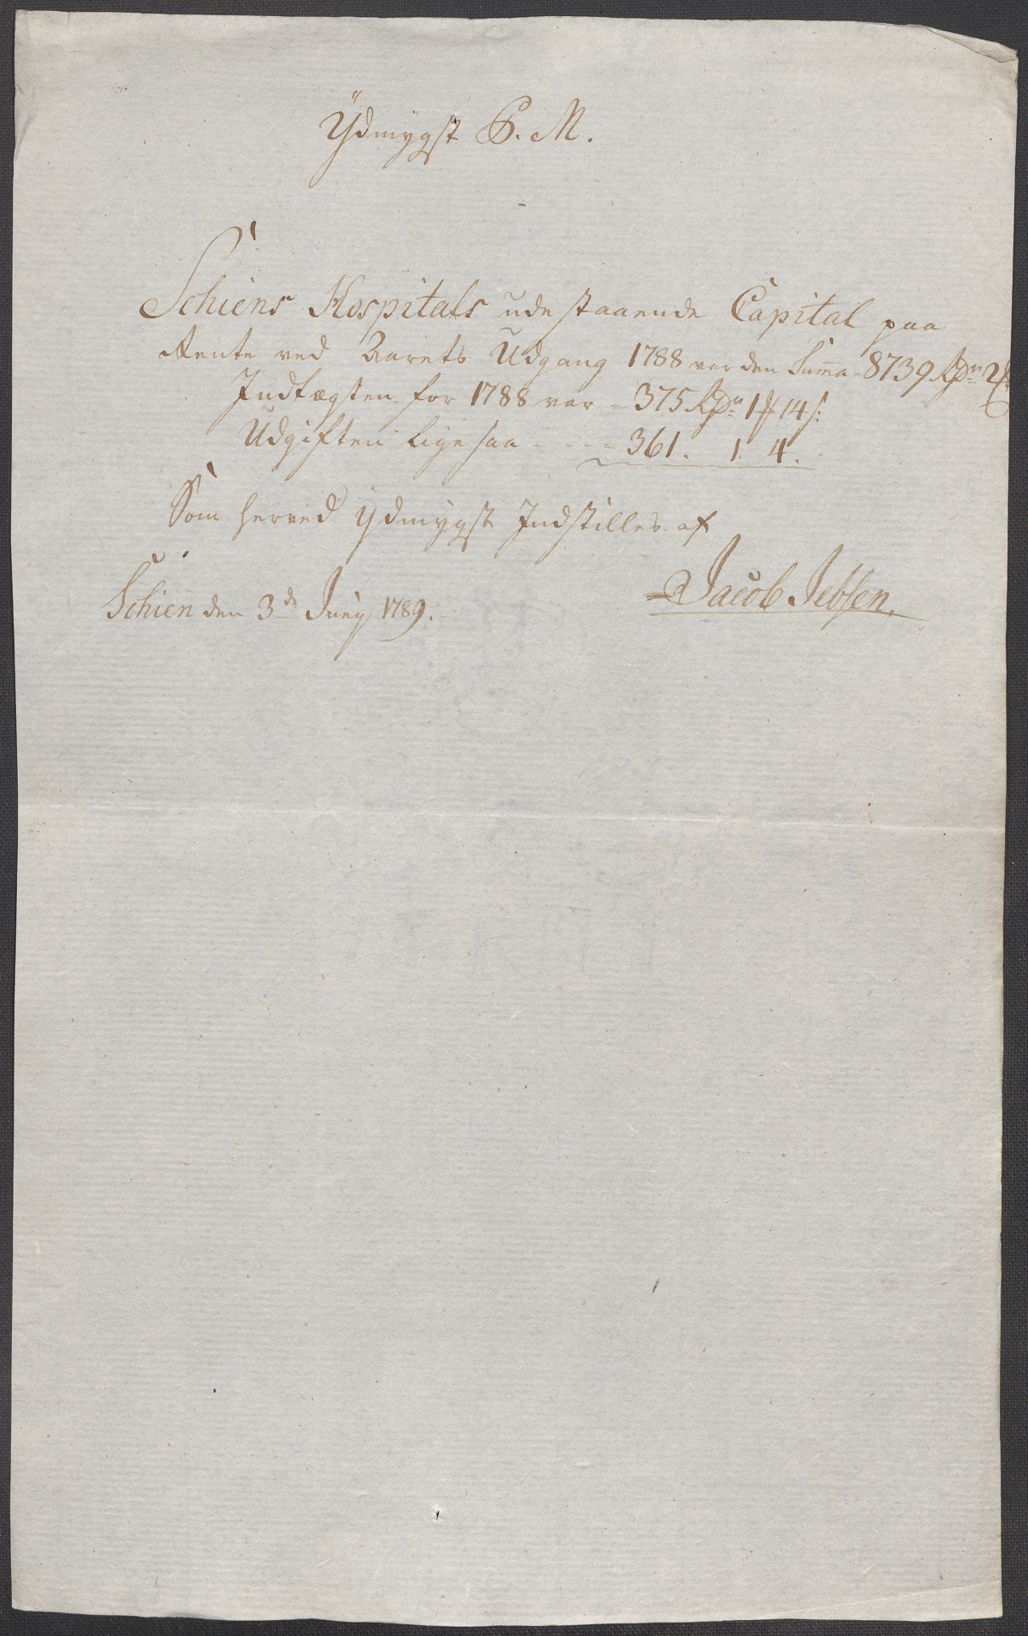 Ydmygst P. M.
Schiens Hospitals udestaaende Capital paa
Rente ved Aarets Udgang 1788 var den Summa 8739 Rdr 2
Indtægten for 1788 var = 375 Rdr 1 14 s:
Udgiften ligesaa - - - - 361. 1. 4.
Som herved ydmygst Indstilles af
Schien den 3de Juny 1789.
Jacob Jebsen.